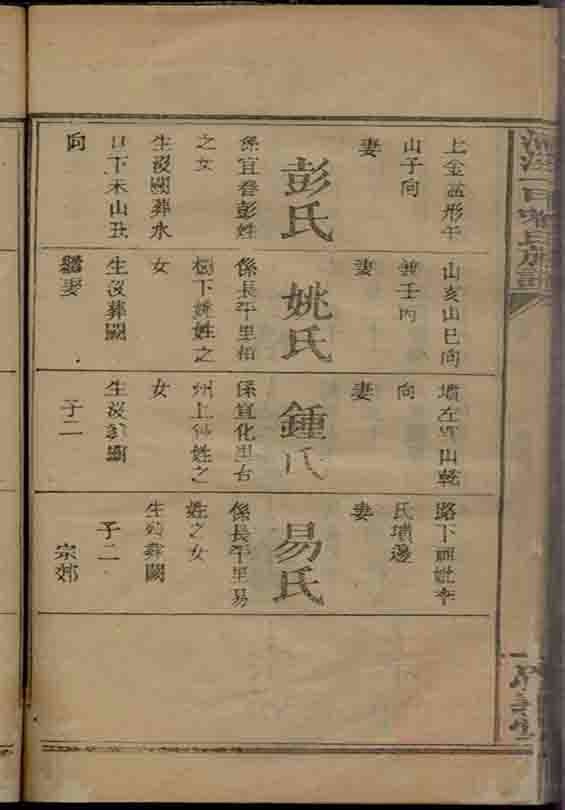 上金盆形午
山子向
妻
彭氏
係宜春彭姓
之女
生沒闕葬水
口下未山丑
向
山亥山巳向
兼壬丙
妻
姚氏
係長平里柏
樹下姚姓之
女
生沒葬闕
繼妻
墳左巽山乾
向
妻
鍾氏
係宜化里台
州上鍾姓之
女
生沒葬闕
子二
路下祖妣李
氏墳邊
妻
易氏
係長平里易
姓之女
生沒葬闕
子二
宗郊